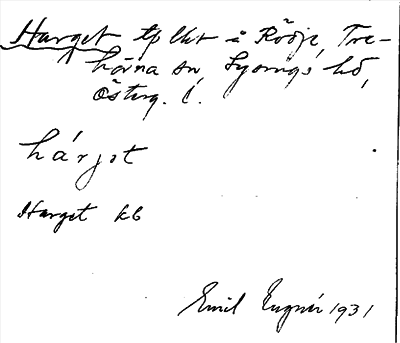 Harget tplkt å Rödje, Tre-
hörna sn, Lysings hd,
Österg. l.
hárjet
Harget kb
Emil 1931